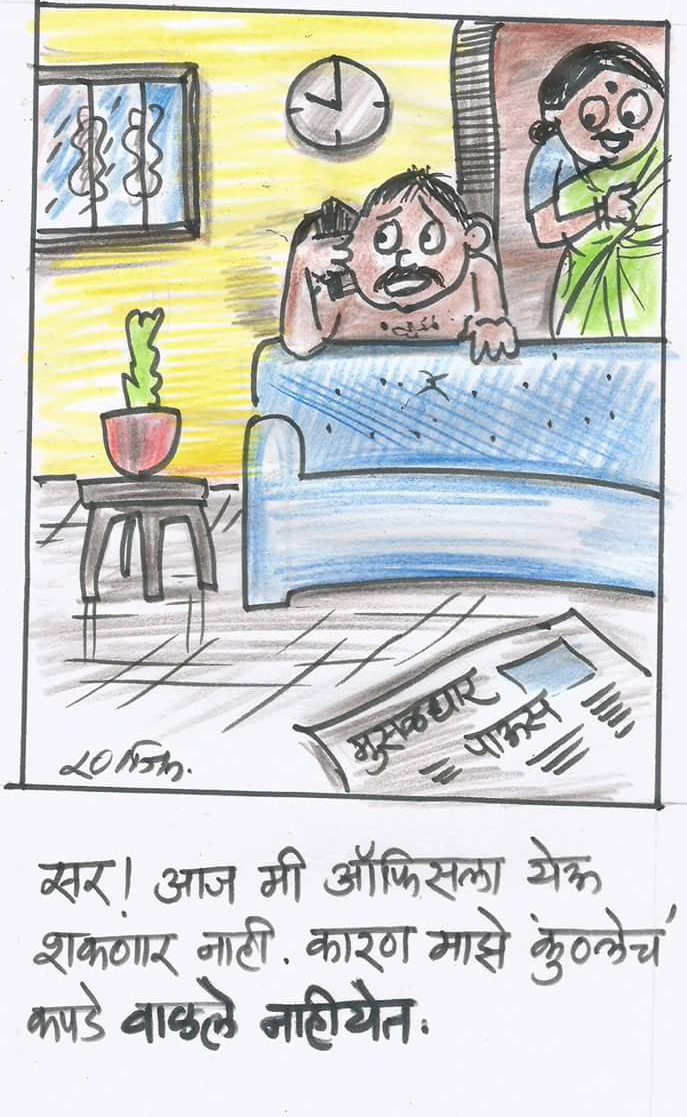 मुसळधार
पाऊस
सर! आज मी ऑफिसला येऊ
शकणार नाही. कारण माझे कुठलेचं
कपडे वाळले नाहीयेत.